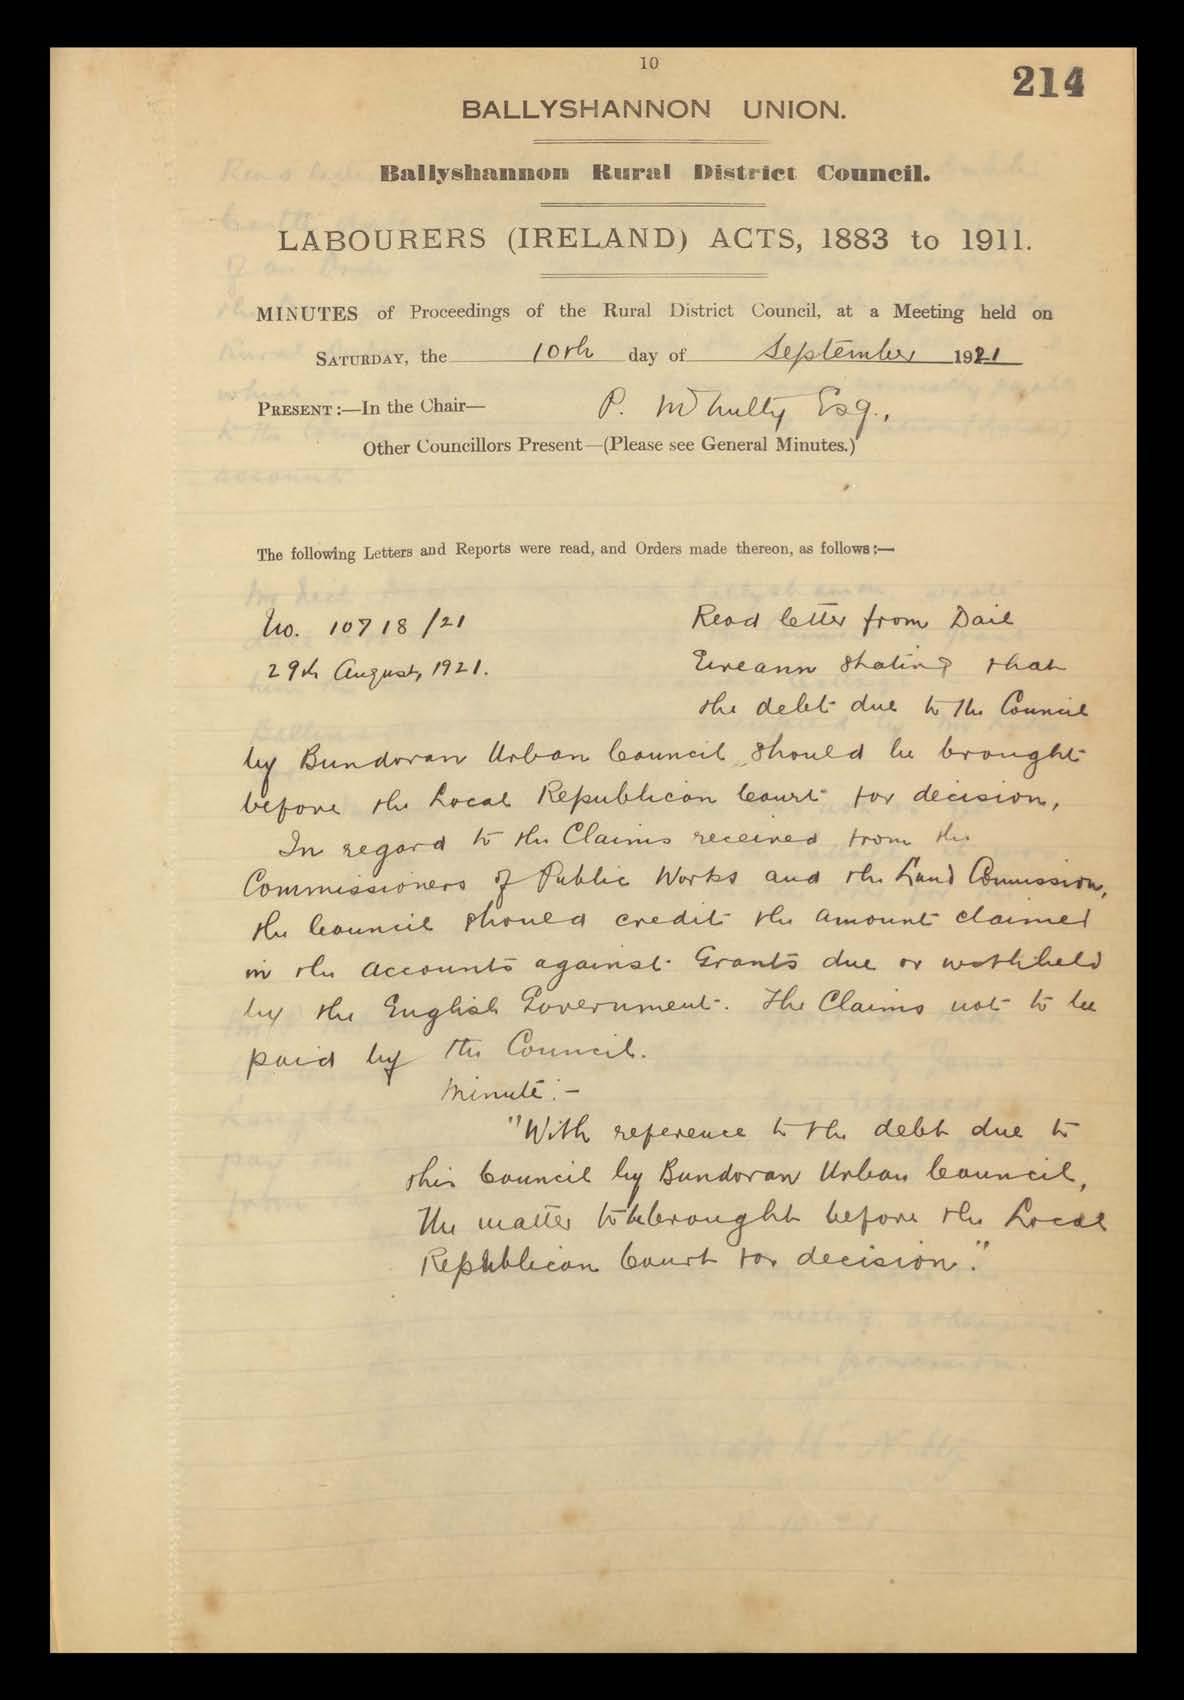 10
214
BALLYSHANNON UNION.
Ballyshannon Rural District Council.
LABOURERS (IRELAND) ACTS, 1883 to 1911.
MINUTES of Proceedings of the Rural District Council, at a Meeting held on
SATURDAY, the 10th day of September 1921
PRESENT:—In the Chair— P. McNulty Esq.,
Other Councillors Present—(Please see General Minutes.)
The following Letters and Reports were read, and Orders made thereon, as follows:—
No. 10718/21 Read letter from Dail
29th August, 1921. Eireann stating that
the debt due to the Council
by Bundoran Urban Council, should be brought
before the Local Republican Court for decision,
In regard to the Claims received from the
Commissioners of Public Works and the Land Commission,
the Council should credit the amount claimed
in the accounts against Grants due or withheld
by the English Government. The Claims not to be
paid by the Council.
Minute:-
"With reference to the debt due to
this Council by Bundoran Urban Council,
the matter to be brought before the Local
Republican Court for decision."